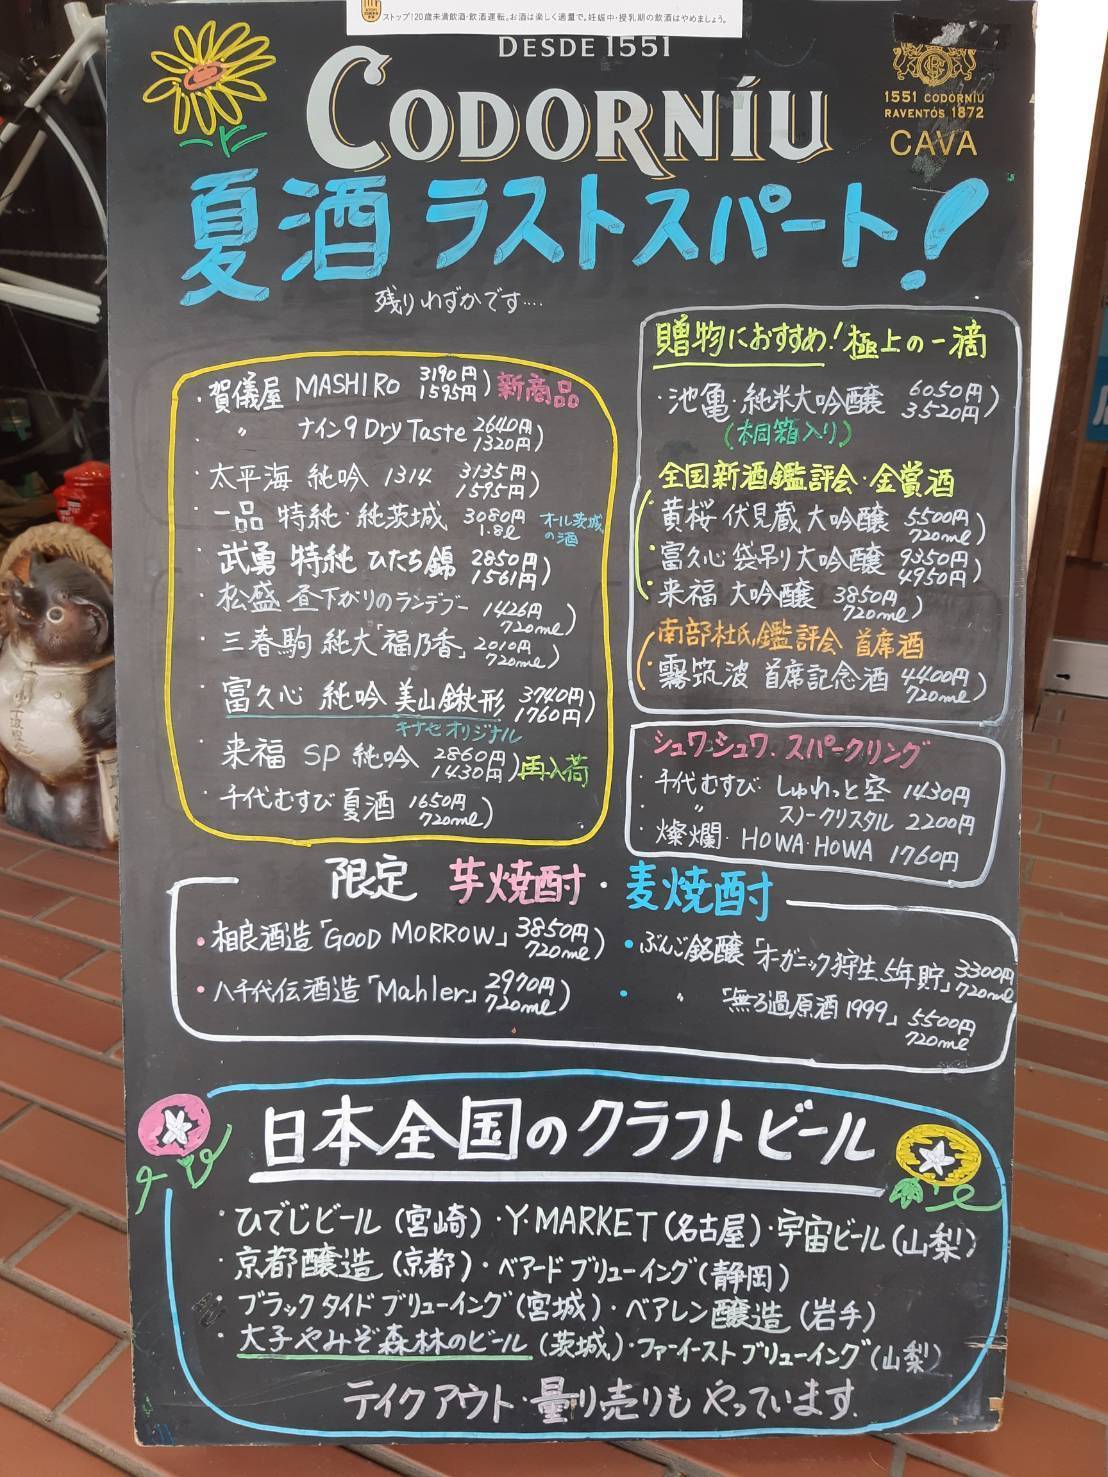 ストップ!20歳未満飲酒・飲酒運転。お酒は楽しく適量で。妊娠中・授乳期の飲酒はやめましょう。
DESDE 1551
CODORNÍU
1551 CODORNÍU
RAVENTÓS 1872
CAVA
夏酒 ラストスパート!
残りわずかです....
・賀儀屋 MASHIRO 3190円 1595円) 新商品
・ 〃 ナイン9 Dry Taste 2640円 1320円)
・太平海 純吟 1314 3135円 1595円)
・一品 特純・純茨城 3080円 1.8l オール茨城の酒
・武勇 特純 ひたち錦 2850円 1561円)
・松盛 昼下がりのランデブー 1426円 720ml)
・三春駒 純大「福乃香」 2010円 720ml)
・富久心 純吟 美山鍬形 3740円 1760円)
キナセオリジナル
・来福 SP 純吟 2860円 1430円) 再入荷
・千代むすび 夏酒 1650円 720ml)
贈物におすすめ!極上の一滴
・池亀・純米大吟醸 6050円 3520円)
(桐箱入り)
全国新酒鑑評会・金賞酒
・黄桜 伏見蔵 大吟醸 5500円 720ml)
・富久心 袋吊り大吟醸 9350円 4950円)
・来福 大吟醸 3850円 720ml)
南部杜氏鑑評会 首席酒
・霧筑波 首席記念酒 4400円 720ml)
シュワシュワ、スパークリング
・千代むすび しゅわっと空 1430円
・ 〃 スノークリスタル 2200円
・燦爛・HOWA・HOWA 1760円
限定 芋焼酎・麦焼酎
・相良酒造「GOOD MORROW」 3850円 720ml)
・八千代伝酒造「Mahler」 2970円 720ml)
・ぶんご銘醸「オーガニック狩生、5年貯」 3300円 720ml
・ 〃 「無ろ過原酒1999」 5500円 720ml
日本全国のクラフトビール
・ひでじビール(宮崎)・Y・MARKET(名古屋)・宇宙ビール(山梨)
・京都醸造(京都)・ベアードブリューイング(静岡)
・ブラックタイドブリューイング(宮城)・ベアレン醸造(岩手)
・大子やみぞ森林のビール(茨城)・ファーイーストブリューイング(山梨)
テイクアウト・量り売りもやっています.